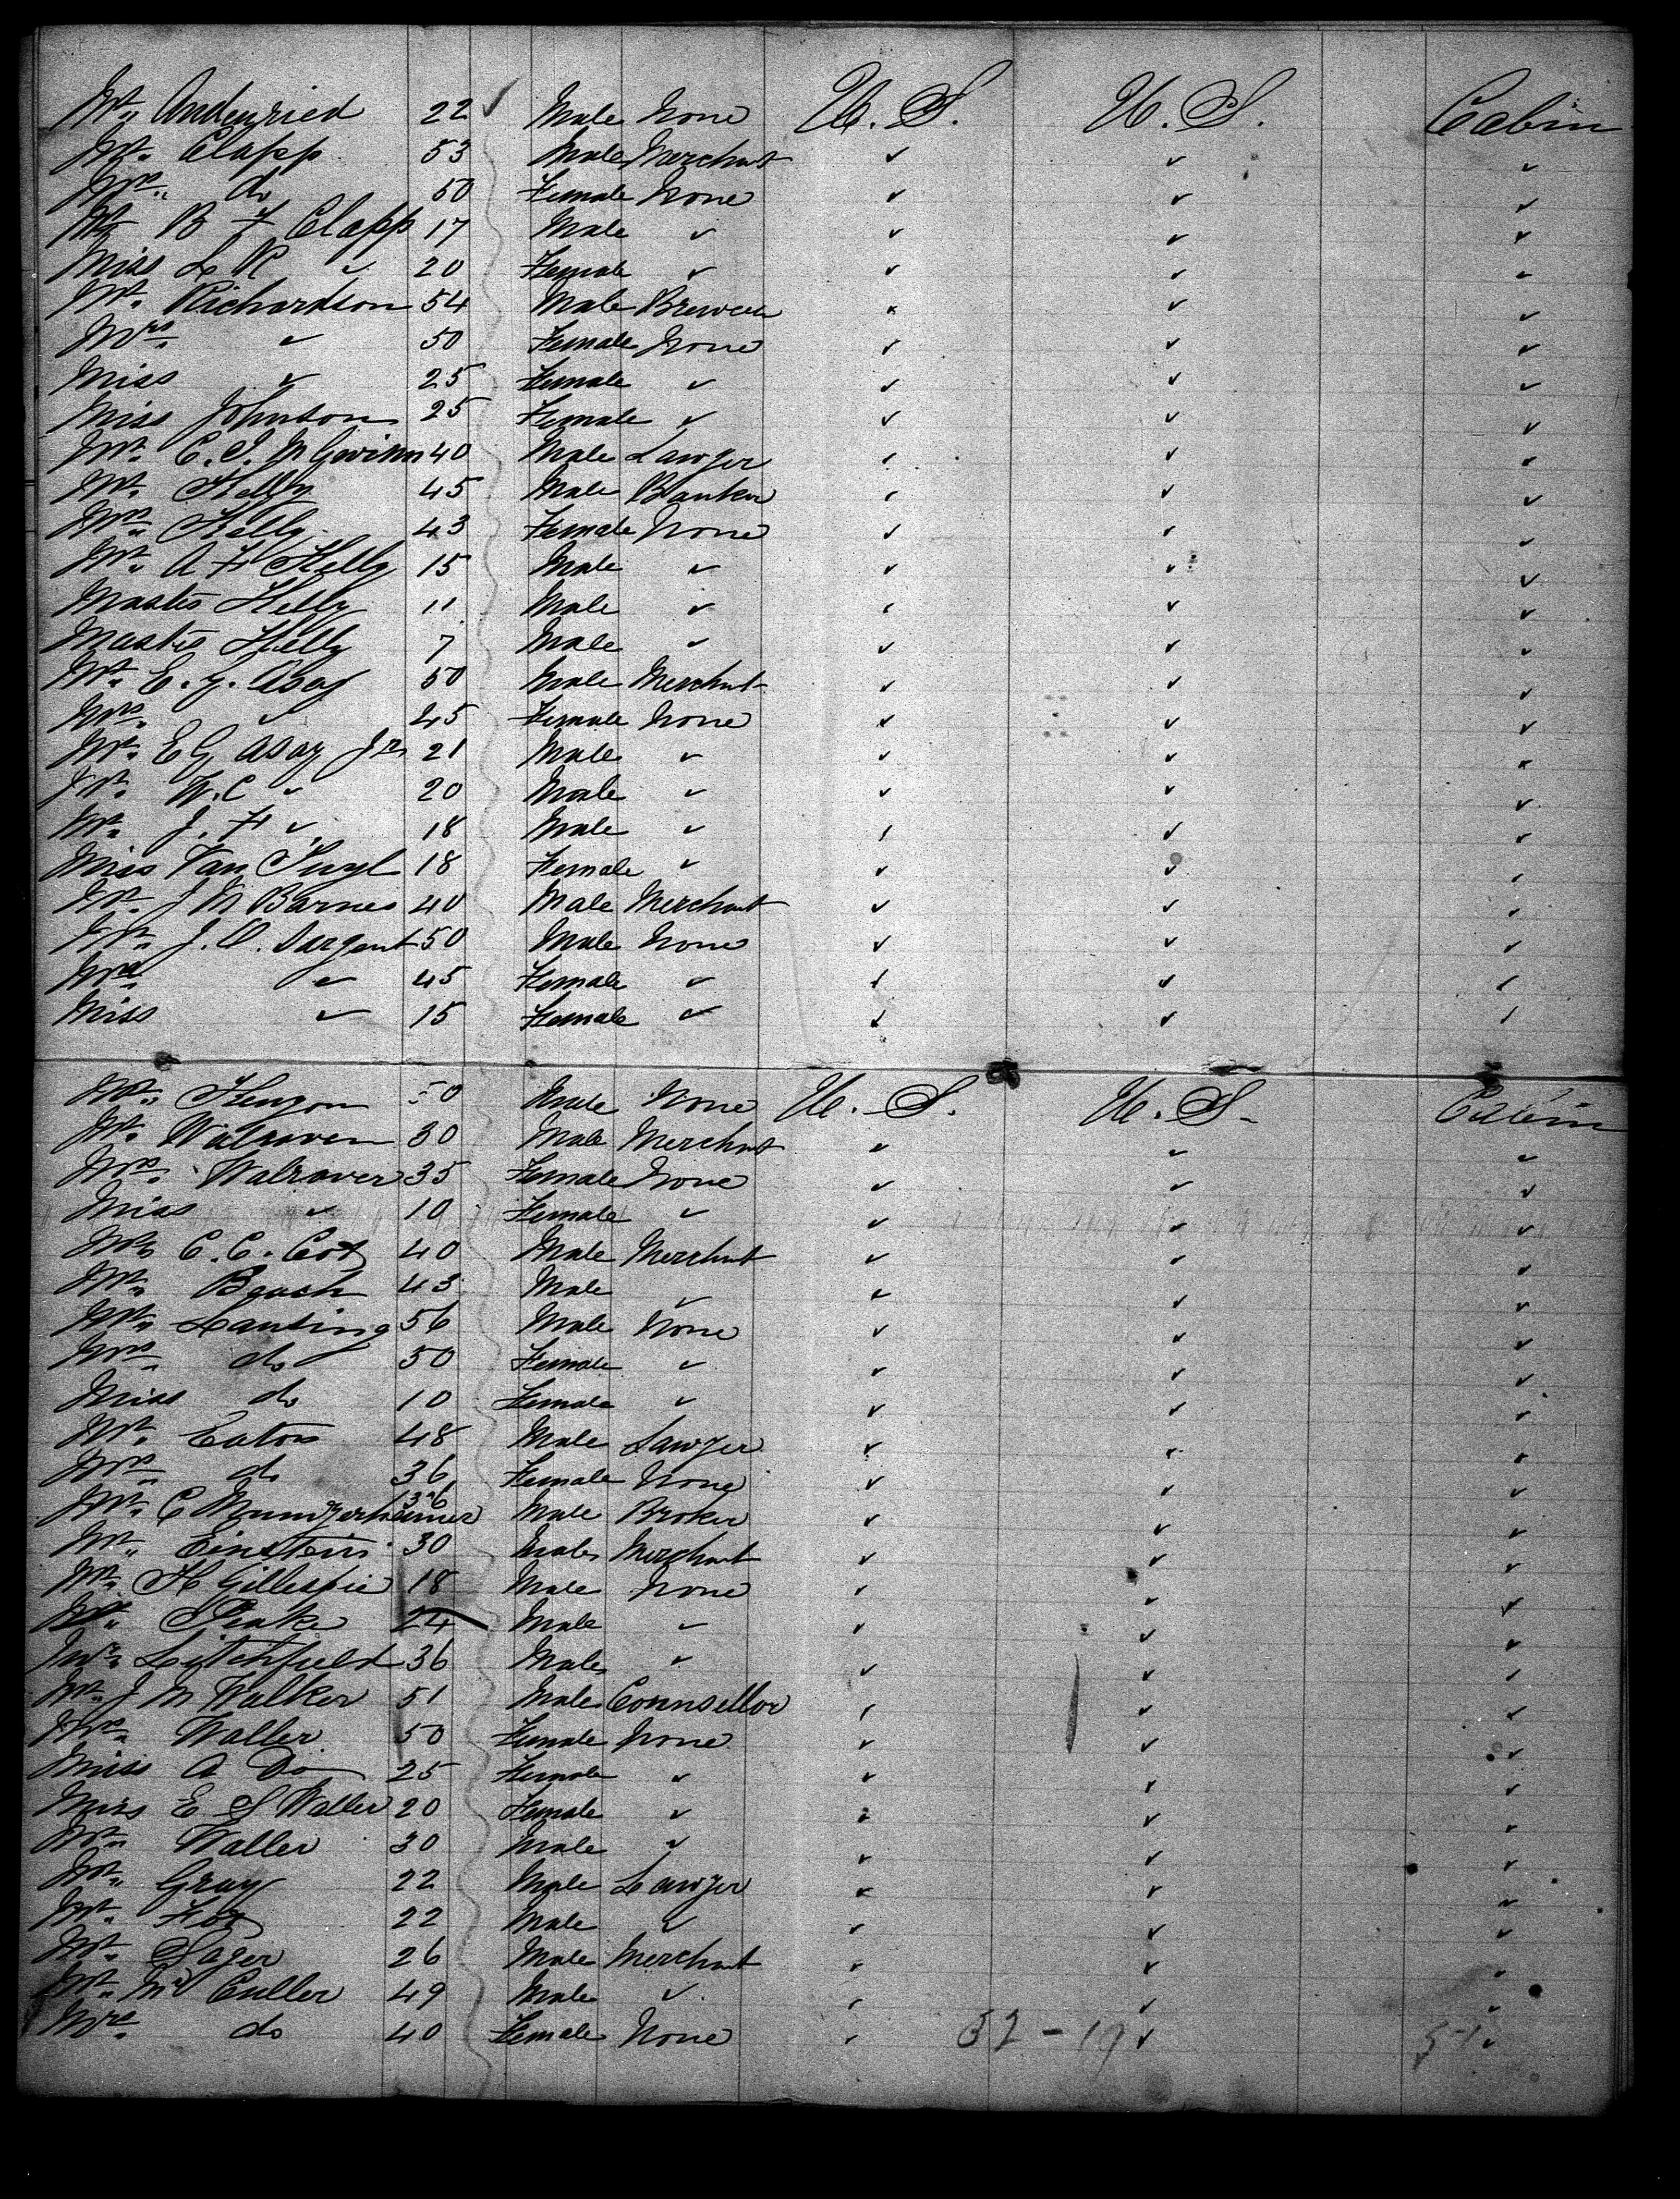 Mr. Audenried 22 ✓ Male None U. S. U. S. Cabin
Mr. Clapp 53 Male Merchant ✓ ✓ ✓
Mrs. do 50 Female None ✓ ✓ ✓
Mr. B F Clapp 17 Male ✓ ✓ ✓ ✓
Miss L R ✓ 20 Female ✓ ✓ ✓ ✓
Mr. Richardson 54 Male Brewer ✓ ✓ ✓
Mrs. ✓ 50 Female None ✓ ✓ ✓
Miss ✓ 25 Female ✓ ✓ ✓ ✓
Miss Johnson 25 Female ✓ ✓ ✓ ✓
Mr. C. J. M Gwinn 40 Male Lawyer ✓ ✓ ✓
Mr. Kelly 45 Male Banker ✓ ✓ ✓
Mrs. Kelly 43 Female None ✓ ✓ ✓
Mr. A F Kelly 15 Male ✓ ✓ ✓ ✓
Master Kelly 11 Male ✓ ✓ ✓ ✓
Master Kelly 7 Male ✓ ✓ ✓ ✓
Mr. E. G. Asay 50 Male Merchant ✓ ✓ ✓
Mrs. ✓ 45 Female None ✓ ✓ ✓
Mr. E G Asay Jr 21 Male ✓ ✓ ✓ ✓
Mr. W. C ✓ 20 Male ✓ ✓ ✓ ✓
Mr. J. F ✓ 18 Male ✓ ✓ ✓ ✓
Miss Van 18 Female ✓ ✓ ✓ ✓
Mr. J M Barnes 40 Male Merchant ✓ ✓ ✓
Mr. J. O. Sargent 50 Male None ✓ ✓ ✓
Mrs ✓ 45 Female ✓ ✓ ✓ ✓
Miss ✓ 15 Female ✓ ✓ ✓ ✓
Mr. Kenyon 50 Male None U. S. U. S. Cabin
Mr. Walraven 30 Male Merchant ✓ ✓ ✓
Mrs. Walraven 35 Female None ✓ ✓ ✓
Miss ✓ 10 Female ✓ ✓ ✓ ✓
Mr. C. C. Cox 40 Male Merchant ✓ ✓ ✓
Mr. Beach 43 Male ✓ ✓ ✓ ✓
Mr. Lansing 56 Male None ✓ ✓ ✓
Mrs. do 50 Female ✓ ✓ ✓ ✓
Miss do 10 Female ✓ ✓ ✓ ✓
Mr. Eaton 48 Male Lawyer ✓ ✓ ✓
Mrs. do 36 Female None ✓ ✓ ✓
Mr. C 36 Male Broker ✓ ✓ ✓
Mr. Einstein 30 Male Merchant ✓ ✓ ✓
Mr. H Gillespie 18 Male None ✓ ✓ ✓
Mr. 24 Male ✓ ✓ ✓ ✓
Mr. Litchfield 36 Male ✓ ✓ ✓ ✓
Mr. J M Walker 51 Male Counsellor ✓ ✓ ✓
Mrs. Waller 50 Female None ✓ ✓ ✓
Miss A Do 25 Female ✓ ✓ ✓ ✓
Miss E S Waller 20 Female ✓ ✓ ✓ ✓
Mr. Waller 30 Male ✓ ✓ ✓ ✓
Mr. Gray 22 Male Lawyer ✓ ✓ ✓
Mr. Fox 22 Male ✓ ✓ ✓ ✓
Mr. 26 Male Merchant ✓ ✓ ✓
Mr. Mc Culler 49 Male ✓ ✓ ✓ ✓
Mrs. do 40 Female None ✓ 32 - 19 ✓ 51 ✓